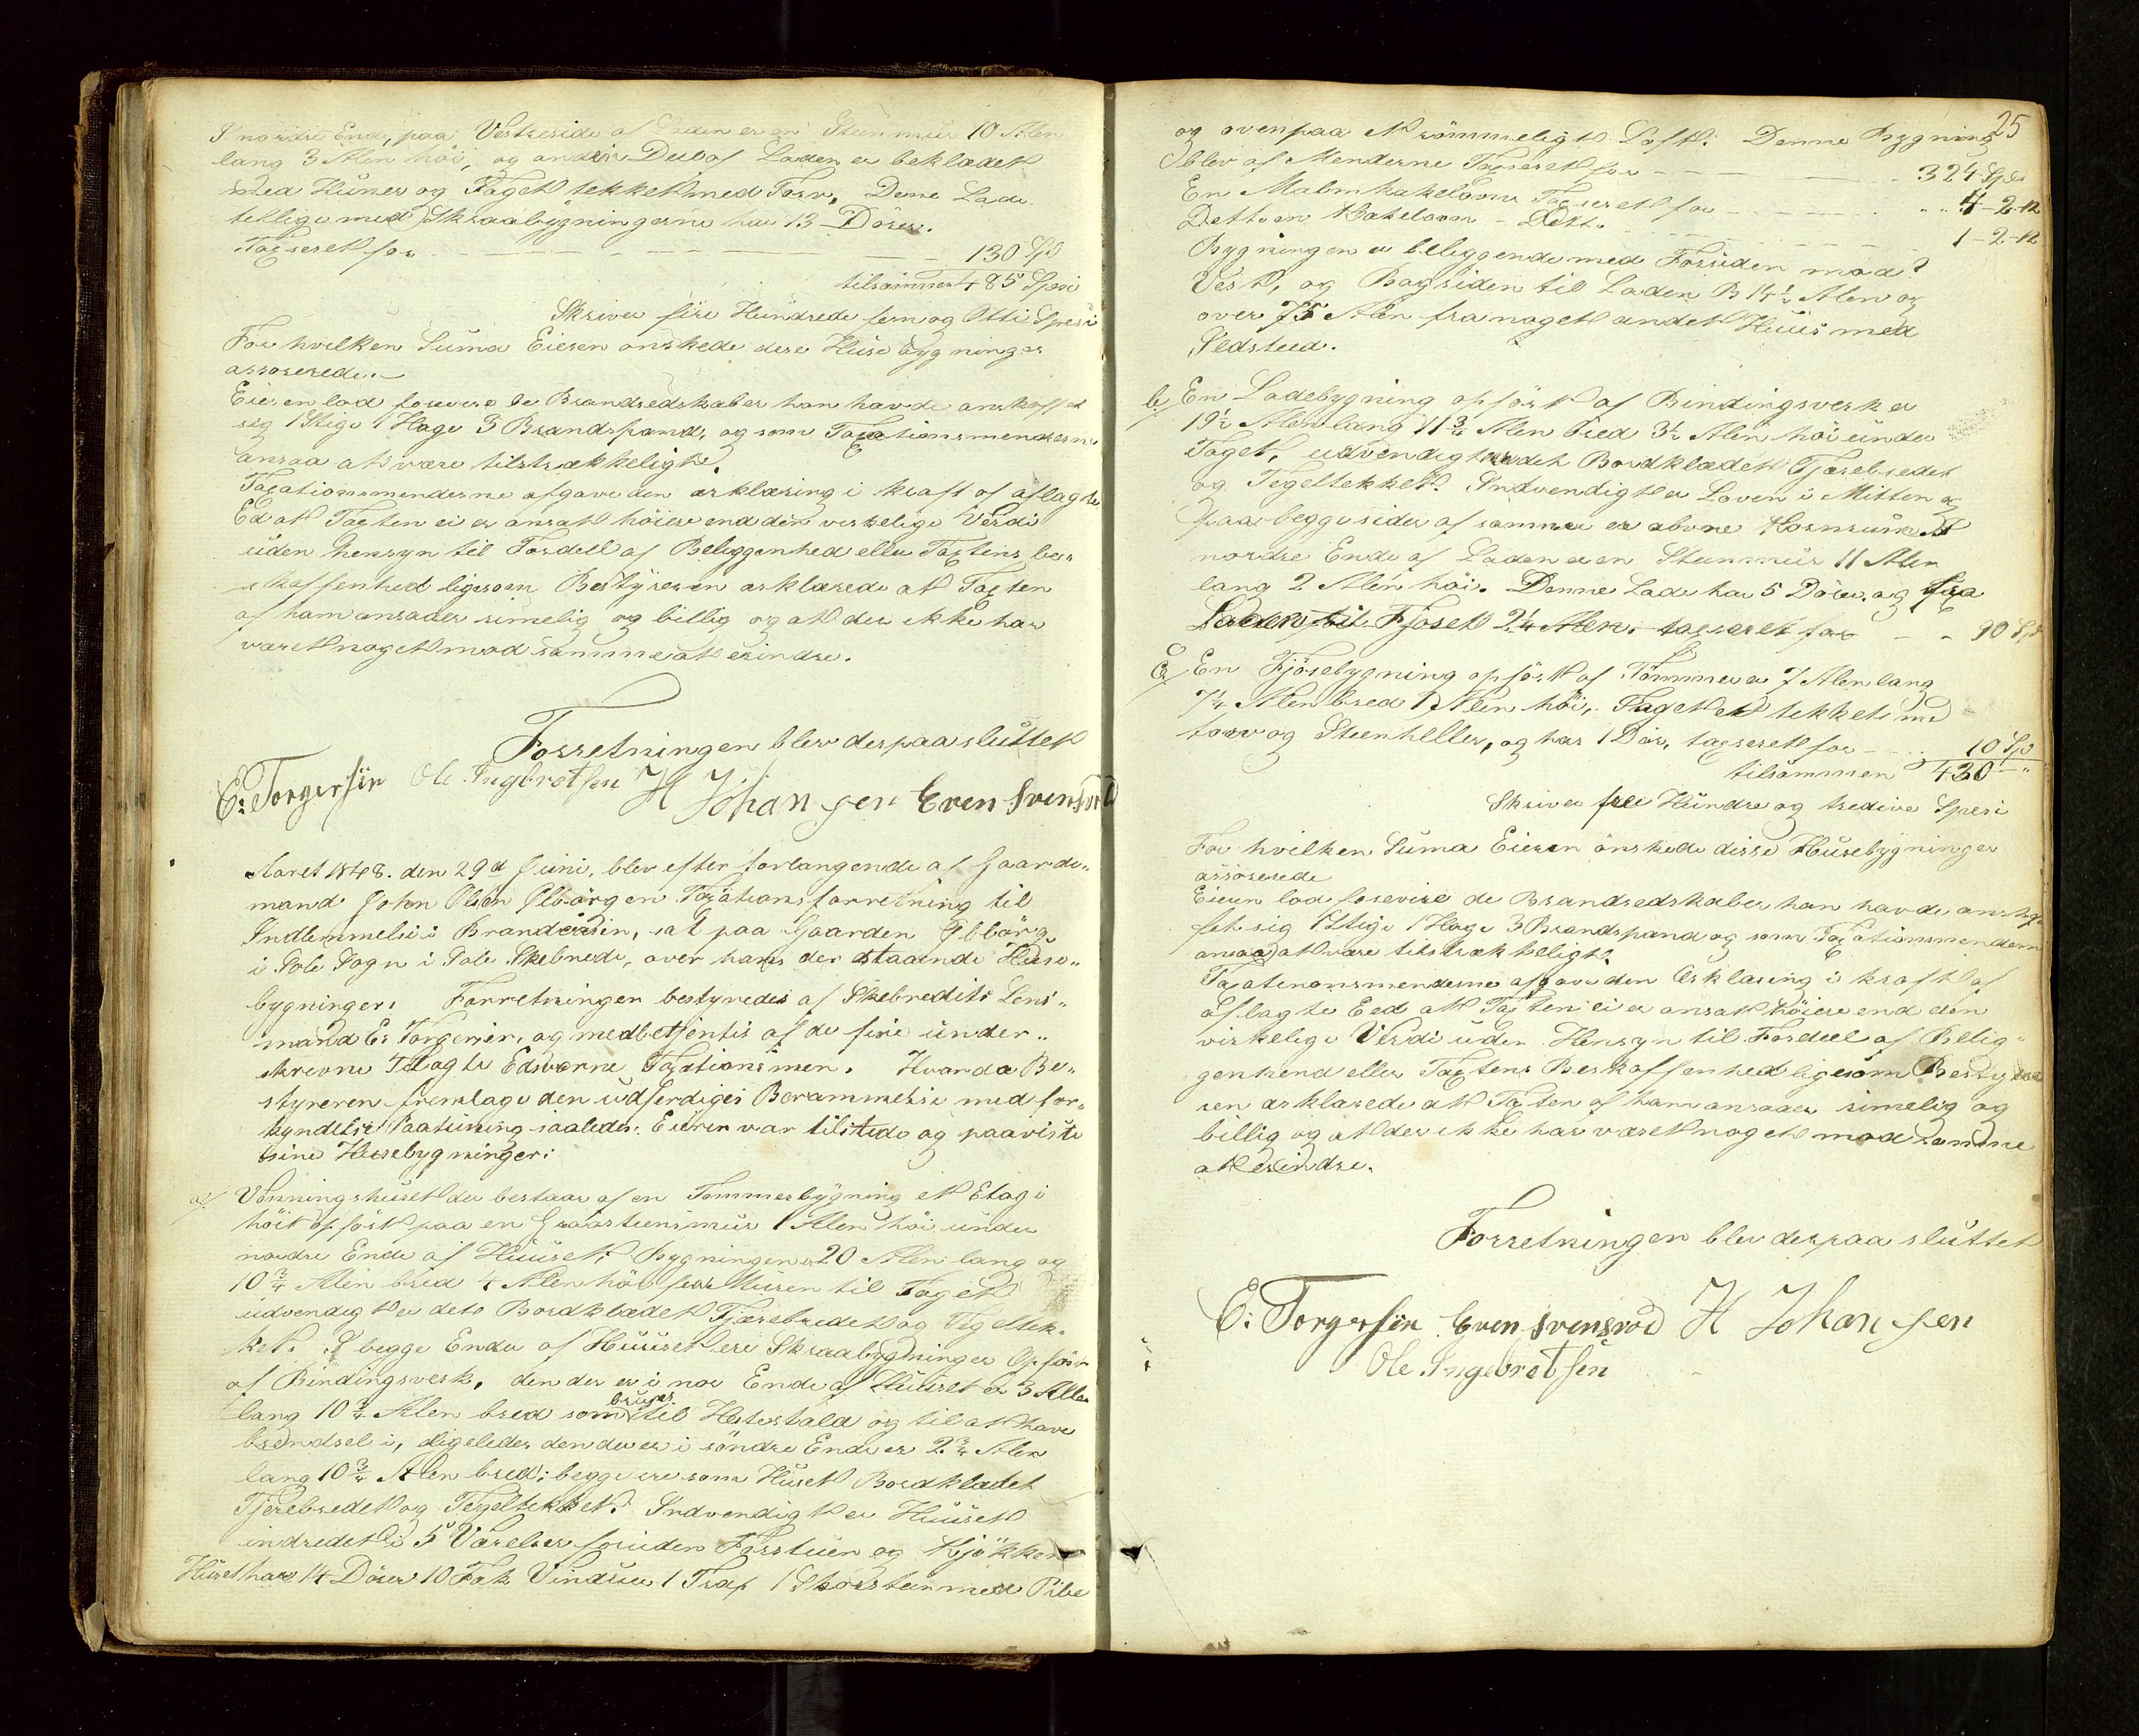 I nordre Ende, paa Vestreside af Laden er en Steenmuur 10 Alen
lang 3 Alen höi, og anden Deel af Laden er beklædet
med Huner og Taget tekket med Torv. Denne Lade
tellige med Skraabygningerne har 13 Dörer.
Taxseret for - - - 130 Spd
tilsammen 485 Spesi
Skriver fire Hundrede fem og Otti Spesi
For hvilken Suma Eieren önskede dise Huse bygninger
assorerede.
Eieren lod forevise de Brandredskaber han havde anskaffet
sig 1 Stige 1 Hage 3 Brandspand, og som Taxationsmenderne
ansaa at være tilstrækkeligt.
Taxationsmenderne afgave den erklæring i kraft af aflagte
Ed at Taxten ei er ansat höiere end den verkelige Verdi
uden hensyn til Fordeel af Beliggenhed eller Taxtens be-
skaffenhed ligesom Bestyreren erklærede at Taxten
af ham ansaaes rimelig og billig og at der ikke har
været noget mod samme at erindre.
Forretningen blev derpaa sluttet
E: Torgersen Ole Ingebretsen H Johansen Even Svensrød
Aaret 1848. den 29d Juni, blev efter forlangende af Gaard-
mand John Olsen Ilbörgen Taxations forretning til
Indlemmelse i Brandcassen, sat paa Gaarden Ilbörg
i Sole Sogn i Sole Skebrede, over hans der staaende Huse-
bygninger. Forretningen bestyredes af Skebredits Lens-
mand E: Torgersen, og medbetjentes af de fire under-
skrevne Tilagte Edsvorne Taxationsmen. Hvorda Be-
styreren fremlage den udferdiges Berammelse med for-
kyndelse Paatening saaledes. Eieren var tilstede og paaviste
sine Husebygninger:
a/ Vonningshuset der bestaar af en Tømmerbygning et Etage
höit opfört paa en Graasteensmuur 1 Alen höi under
nordre Ende af Huuset. Bygningen er 20 Alen lang og
10 3/4 Alen bred 4 Alen höi fra Muren til Taget
udvendigt er dets Bordklædet Tjærebredet og Tegltek-
ket. I begge Ender af Huuset ere Skraabygninger Opfört
af Bindingsverk, den der er i nor Ende af Huuset er 3 Allen
lang 10 3/4 Alen bred som bruges til Hestestald og til at have
brendsel i, ligeledes den der er i söndre Ende er 2 3/4 Alen
lang 10 3/4 Alen bred; begge ere som Huset Bordkladet
Tjerebredet og Tegeltekket. Indvendigt er Huuset
indredet i 5 Værelser foruden Forstuen og Kjökken
Huset har 14 Dörer 10 Fak Vinduer 1 Trap 1 Skorsteen med Pibe
25
og ovenpaa et römmeligt Loft. Denne Bygning
blev af Menderne Taxseret for - - - 324 Spd
En Malmkakelovn Taxseret for - - - 4-2-12
Dette en Kakelovn - Dett. - - - 1-2-12
Bygningen er beliggende med Forsiden mod
Vest, og Bagsiden til Laden B 14 1/2 Alen og
over 75 Alen fra noget andet Huus med
Ildsteed.
b/ En Ladebygning opfört af Bindingsverk er
19 1/2 Alen lang 11 3/4 Alen bred 3 1/2 Alen höi under
Taget, udvendigt er det Bordklædet Tjærebredet
og Tegeltekket. Indvendigt er Loven i Mitten og
paa begge sider af samme er abone Kornrum. I
nordre Ende af Laden er en Steenmuur 11 Alen
lang 2 Alen höi. Denne Lade har 5 Dörer, og fra
Laden til Fjöset 2 1/4 Alen. taxseret for - - 90 Spd
c/ En Fjösebygning opfört af Tömmer er 7 Alen lang
7 1/4 Alen bred 1 Alen höi, Taget er tekket med
torv og Steenheller, og har 1 Dör, taxseret for - - 10 Sp
tilsammen 430 - "
Skriver fire Hundre og tredive Spesi
For hvilken Suma Eieren önskede disse Husebygninger
assorerede
Eieren lod forevise de Brandredskaber han havde anskaf-
fet sig 1 Stige 1 Hage 3 Brandspand og som Taxationsmendern
ansaae at være tilstrækkeligt.
Taxationonsmenderne afgave den Erklæring i kraft af
aflagte Eed at Taxten ei er ansat höiere end den
virkelige Verdi uden Hensyn til Fordeel af Belig-
genhend eller Taxtens Beskaffenhed ligesom Bestyre
ren erklærede at Taxten af ham ansaaes rimelig og
billig og at der ikke har været noget mod samme
at erindre.
Forretningen blev derpaa sluttet
E: Torgersen Even Svensrød H Johansen
Ole Ingebretsen